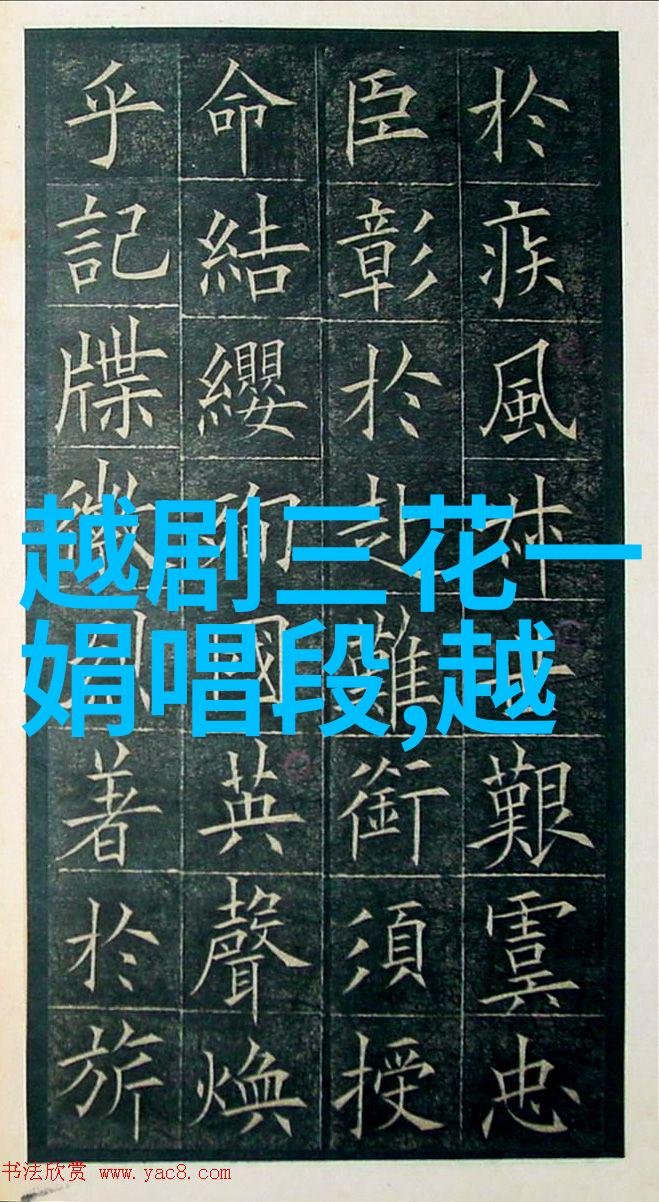 於疾風叔艱虞忠
臣彰於赴難銜須授
命結纓殉國英聲煥
乎記牒徽著於旂
越剧三花一
娟唱段,越
书法欣赏 www.yac8.com